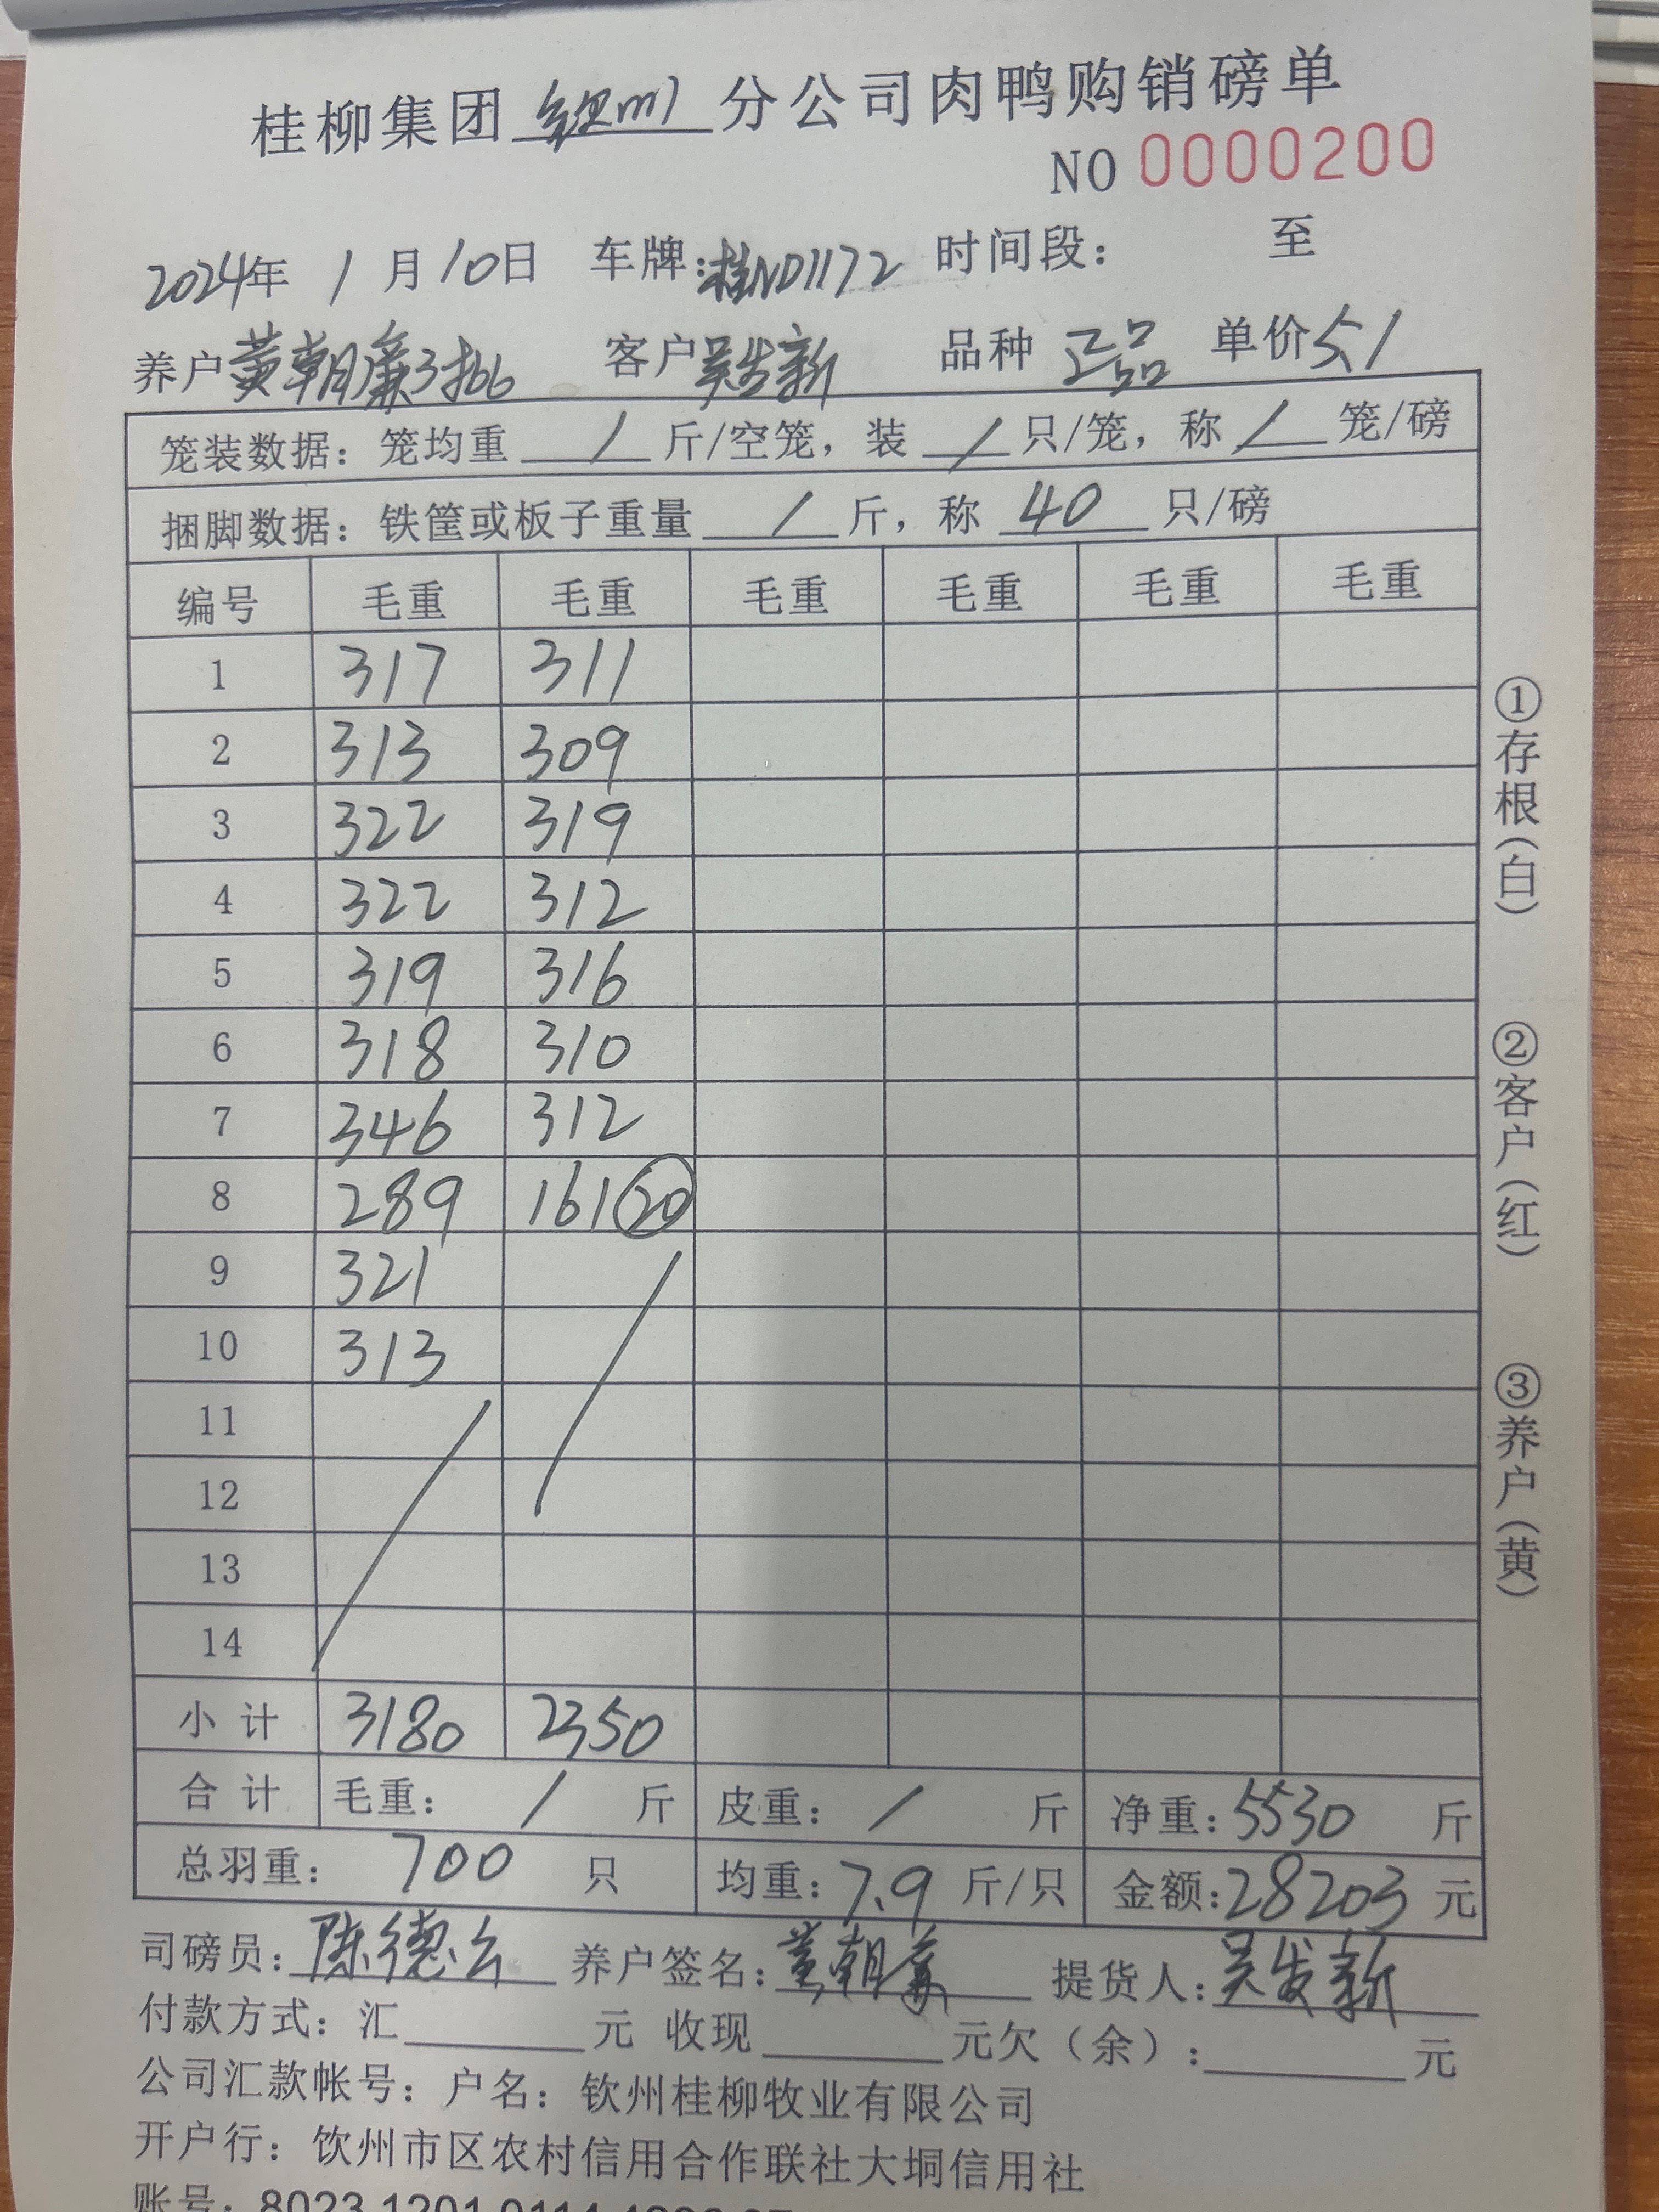 桂柳集团 钦州 分公司肉鸭购销磅单
NO 0000200
2024年 1 月 10日 车牌:桂ND1172 时间段: 至
养户 黄朝廉3批 客户 吴发新 品种 正品 单价 5.1
笼装数据: 笼均重 / 斤/空笼, 装 / 只/笼, 称 / 笼/磅
捆脚数据: 铁筐或板子重量 / 斤, 称 40 只/磅
编号 毛重 毛重 毛重 毛重 毛重 毛重
1 317 311
2 313 309
3 322 319
4 322 312
5 319 316
6 318 310
7 346 312
8 289 161 20
9 321
10 313
11
12
13
14
小 计 3180 2350
合 计 毛重: / 斤 皮重: / 斤 净重: 5530 斤
总羽重: 700 只 均重: 7.9 斤/只 金额: 28203 元
司磅员: 陈德云 养户签名: 黄朝廉 提货人: 吴发新
付款方式: 汇 元 收现 元欠(余): 元
公司汇款帐号: 户名: 钦州桂柳牧业有限公司
开户行: 钦州市区农村信用合作联社大垌信用社
账号: 8023 1201 0114
①存根(白)
②客户(红)
③养户(黄)